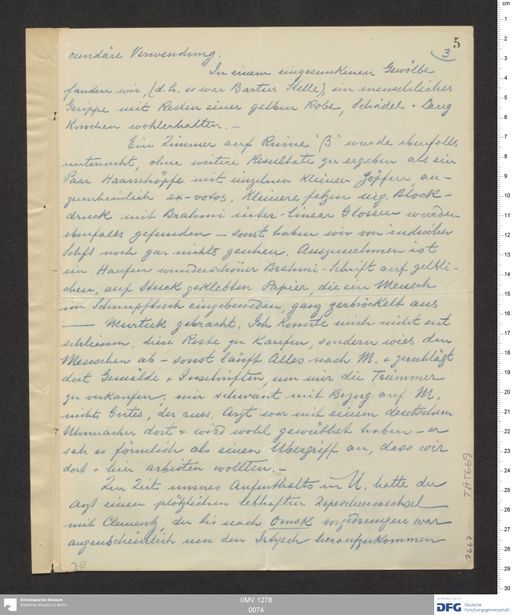 5
3
cundäre Verwendung.
In einem eingesunkenen Gewölbe
fanden wir, (d. h. es war Bartus Stelle) ein menschliches
Gerippe mit Resten einer gelben Robe, Schädel + Lang
Knochen wohlerhalten. —
Ein Zimmer auf Ruine "β" wurde ebenfalls
untersucht, ohne weitere Resultate zu ergeben als ein
Paar Haarschöpfe mit einzelnen kleinen Zöpfen, au-
genscheinlich ex-votos. Kleinere fetzen uig. Block-
druck mit Brahmi inter-linear Glossen wurden
ebenfalls gefunden — sonst haben wir von indischer
Schft noch gar nichts gesehen. Auszunehmen ist
ein Haufen wunderschöner Brahmi-Schrift auf gelbli-
chem, auf Stuck geklebten Papier, die ein Mensch
im Schnupftuch eingebunden, ganz zerbröckelt aus
— Murtuk gebracht. Ich konnte mich nicht ent
schliessen, diese Reste zu kaufen, sondern wies den
Menschen ab — sonst läuft Alles nach M. + zerschlägt
dort Gemälde + Inschriften, um mir die Trümmer
zu verkaufen. mir schwant mit Bezug auf M.
nichts Gutes, der russ. Arzt war mit einem deutschen
Uhrmacher dort + wird wohl gewühlt haben — er
sah es förmlich als einen Übergriff an, dass wir
dort + hier arbeiten wollten. —
Zur Zeit unseres Aufenthalts in U. hatte der
Arzt einen plötzlichen lebhaften Depeschenwechsel
mit Clementz, der bis nach Omsk vorgedrungen war
augenscheinlich um den Irtysch heraufzukommen
TA 7669
7667
70
Ethnologisches Museum
Staatliche Museen zu Berlin
I/MV 1278
0074
DFG
Deutsche
Forschungsgemeinschaft
cm
1
2
3
4
5
6
7
8
9
10
11
12
13
14
15
16
17
18
19
20
21
22
23
24
25
26
27
28
29
30